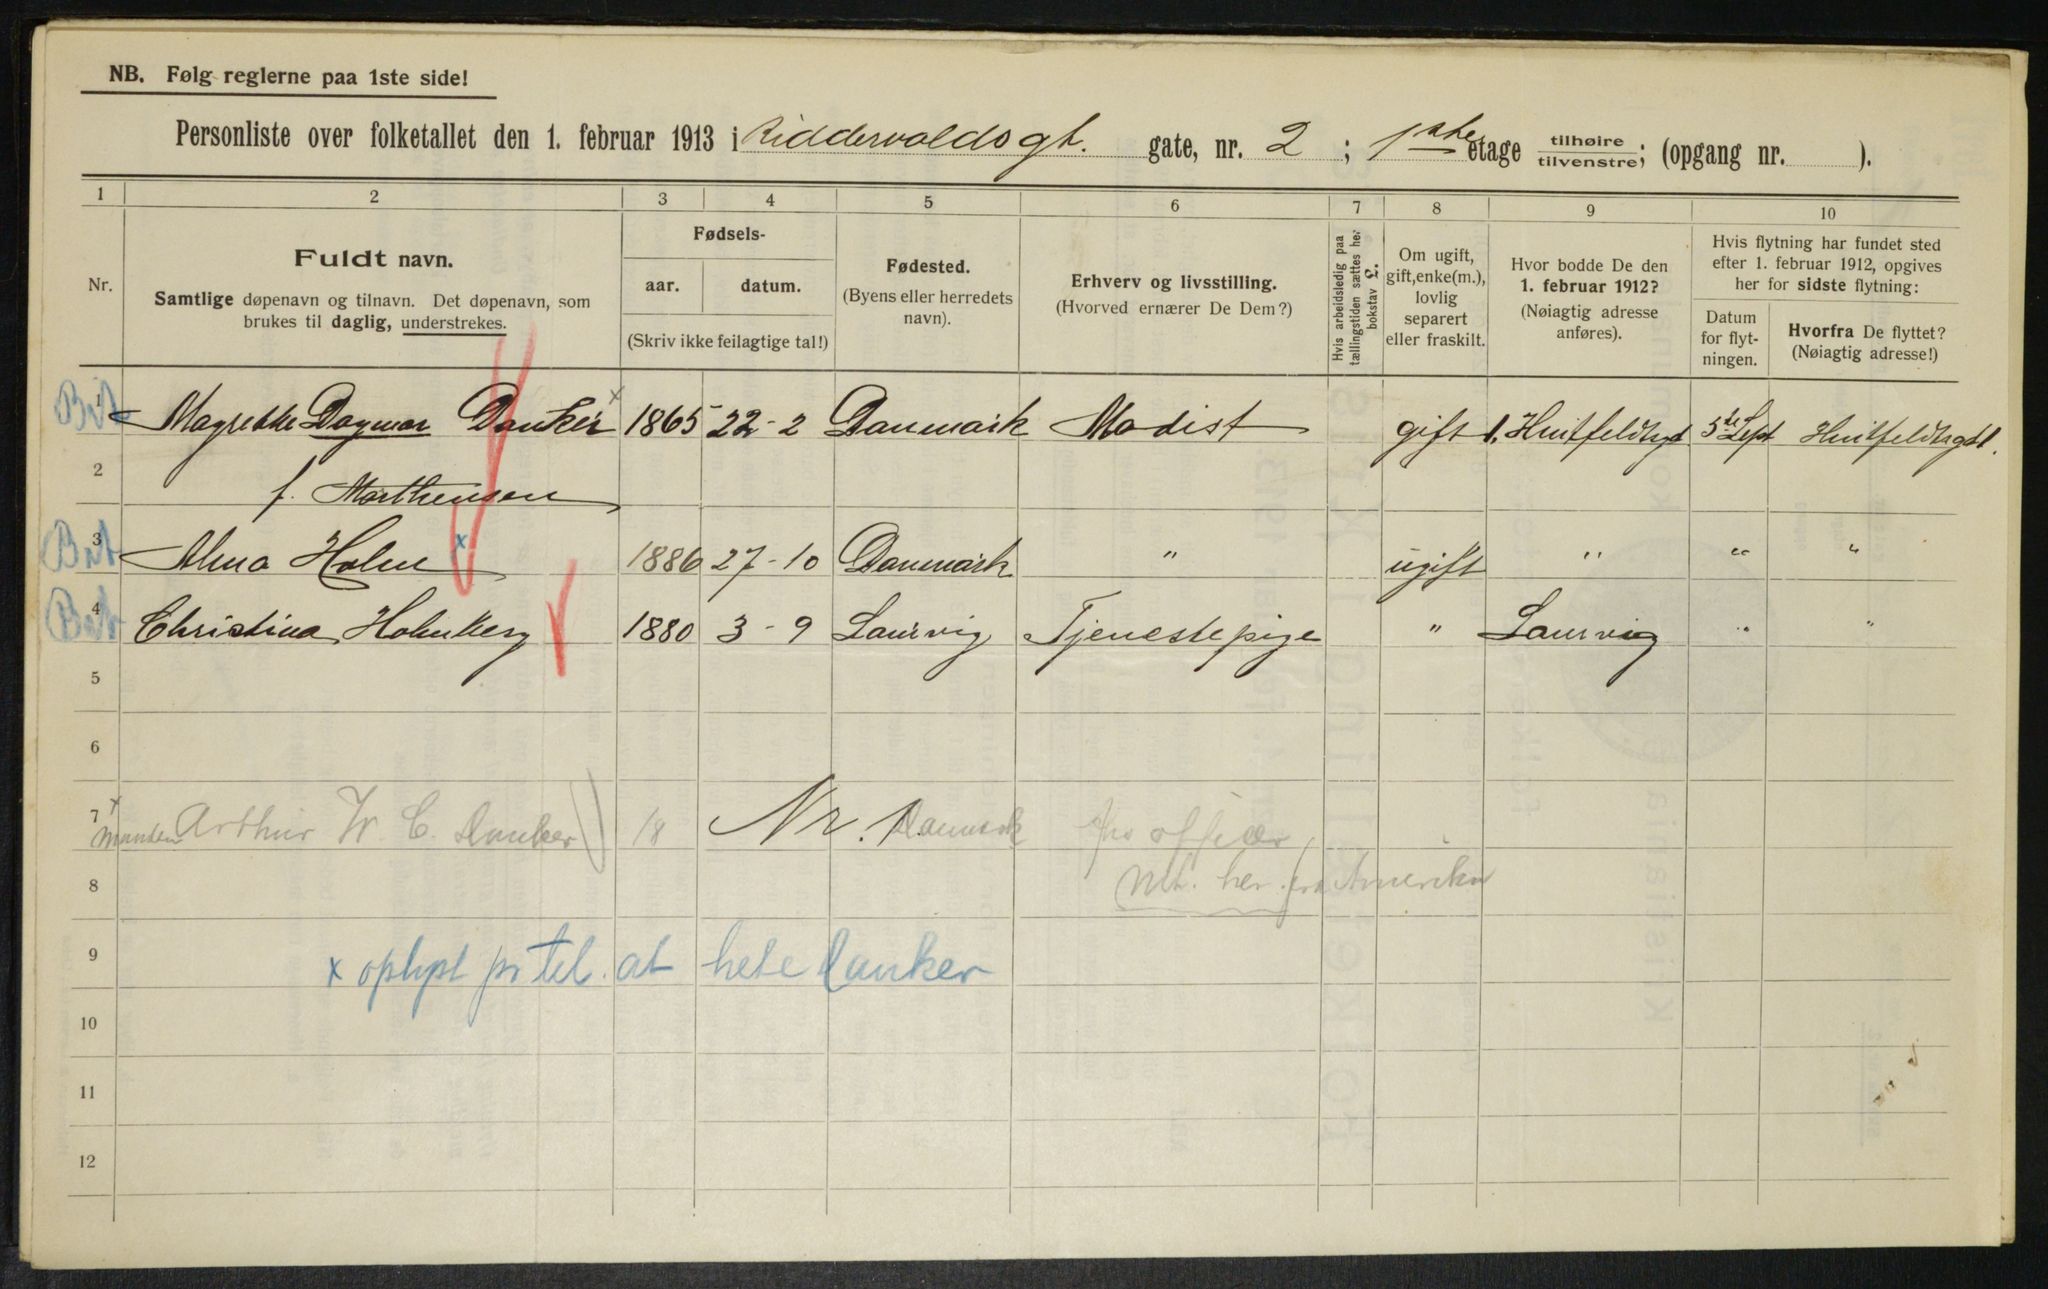 NB. Følg reglerne paa 1ste side!
Personliste over folketallet den 1. februar 1913 i Riddervoldsgt. gate, nr. 2 ; 1ste etage tilhøire tilvenstre; (opgang nr. ).
1 2 3 4 5 6 7 8 9 10
Nr.
Fuldt navn.
Samtlige døpenavn og tilnavn. Det døpenavn, som
brukes til daglig, understrekes.
Fødsels-
aar. datum.
(Skriv ikke feilagtige tal!)
Fødested.
(Byens eller herredets
navn).
Erhverv og livsstilling.
(Hvorved ernærer De Dem?)
Hvis arbeidsledig paa
tællingstiden sættes her
bokstav L.
Om ugift,
gift, enke(m.),
lovlig
separert
eller fraskilt.
Hvor bodde De den
1. februar 1912?
(Nøiagtig adresse
anføres).
Hvis flytning har fundet sted
efter 1. februar 1912, opgives
her for sidste flytning:
Datum
for flyt-
ningen.
Hvorfra De flyttet?
(Nøiagtig adresse!)
1 Magrethe Dagmar Danker x 1865 22-2 Danmark Modist gift 1. Huitfeldtsgt 5te Sept Huitfeldtsgt 1.
2 f. Morthensen
3 Alma Holm x 1886 27-10 Danmark " ugift " " "
4 Christina Holmberg 1880 3-9 Laurvig Tjenestepige " Laurvig " "
5
6
7 x Manden Arthur W. C. Danker 18 Nr. 1 Danmark officer
8 Mt. her fra Amerika
9 x oplyst pr tel. at hete Danker
10
11
12